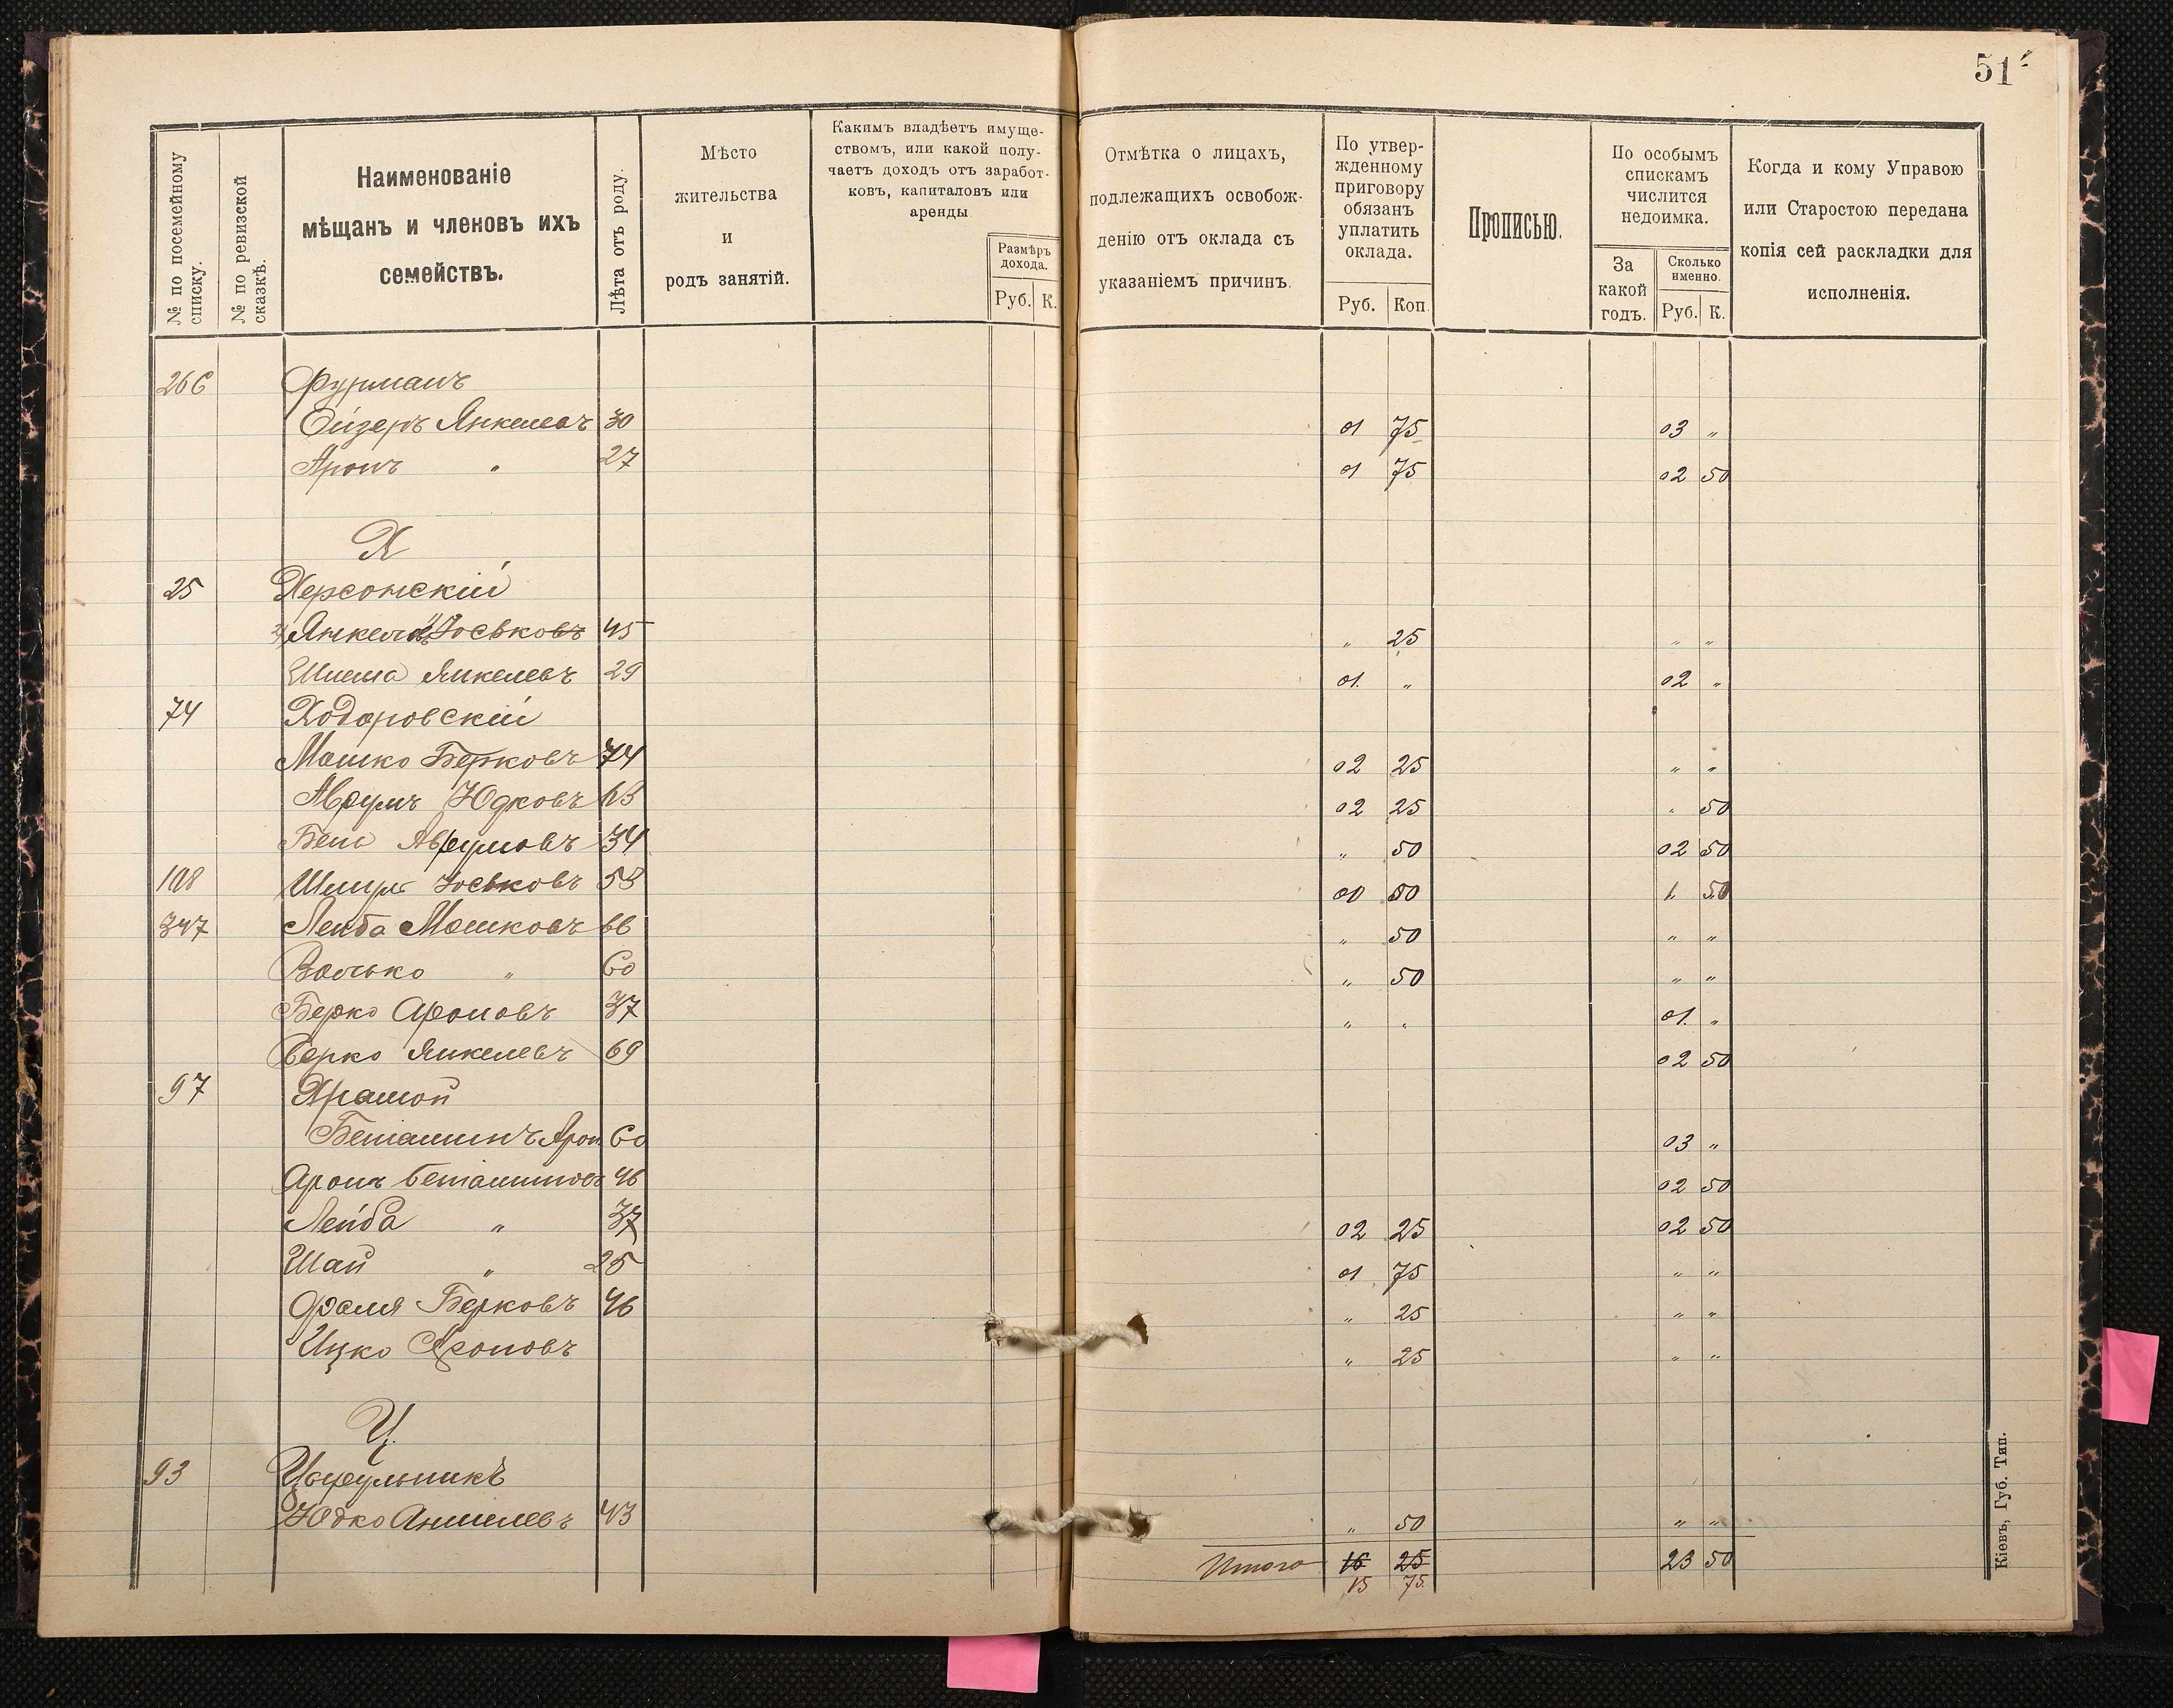 51
№ по посемейному списку.
№ по ревизской сказкѣ.
Наименованіе
мѣщанъ и членовъ ихъ
семействъ.
Лѣта отъ роду.
Мѣсто
жительства
и
родъ занятій.
Какимъ владѣетъ имуще-
ствомъ, или какой полу-
чаетъ доходъ отъ заработ-
ковъ, капиталовъ или
аренды
Размѣръ
дохода.
Руб. К.
Отмѣтка о лицахъ,
подлежащихъ освобож-
денію отъ оклада съ
указаніемъ причинъ.
По утвер-
жденному
приговору
обязанъ
уплатить
оклада.
Руб. Коп.
Прописью.
По особымъ
спискамъ
числится
недоимка.
За
какой
годъ.
Сколько
именно.
Руб. К.
Когда и кому Управою
или Старостою передана
копія сей раскладки для
исполненія.
266 Фурманъ
Ейзеръ Янкелевъ 30 01 75 03 „
Аронъ „ 27 01 75 02 50
Х
25 Херсонскій
Янкель Юськовъ 45 „ 25 „ „
Шлема Янкелевъ 29 01. „ 02 „
74 Ходоровскій
Мошко Берковъ 74 02 25 „ „
Аврумъ Юдковъ 63 02 25 „ 50
Беня Аврумовъ 34 „ 50 02 50
108 Шмуль Юськовъ 53 00 50 1. 50
347 Лейба Мошковъ 66 „ 50 „ „
Волько „ 60 „ 50 „ „
Берко Ароновъ 37 „ „ 01. „
Берко Янкелевъ 69 02 50
97 Храмой
Беніаминъ Арон 60 03 „
Аронъ Беніаминовъ 46 02 50
Лейба „ 37 02 25 02 50
Шай „ 25 01 75 „ „
Фроля Берковъ 46 „ 25 „ „
Ицко Ароновъ „ 25 „ „
Ц.
93 Цырульникъ
Юдко Аншелевъ 43 „ 50 „ „
Итого 16 25 23 50
15 75.
Кіевъ, Губ. Тип.